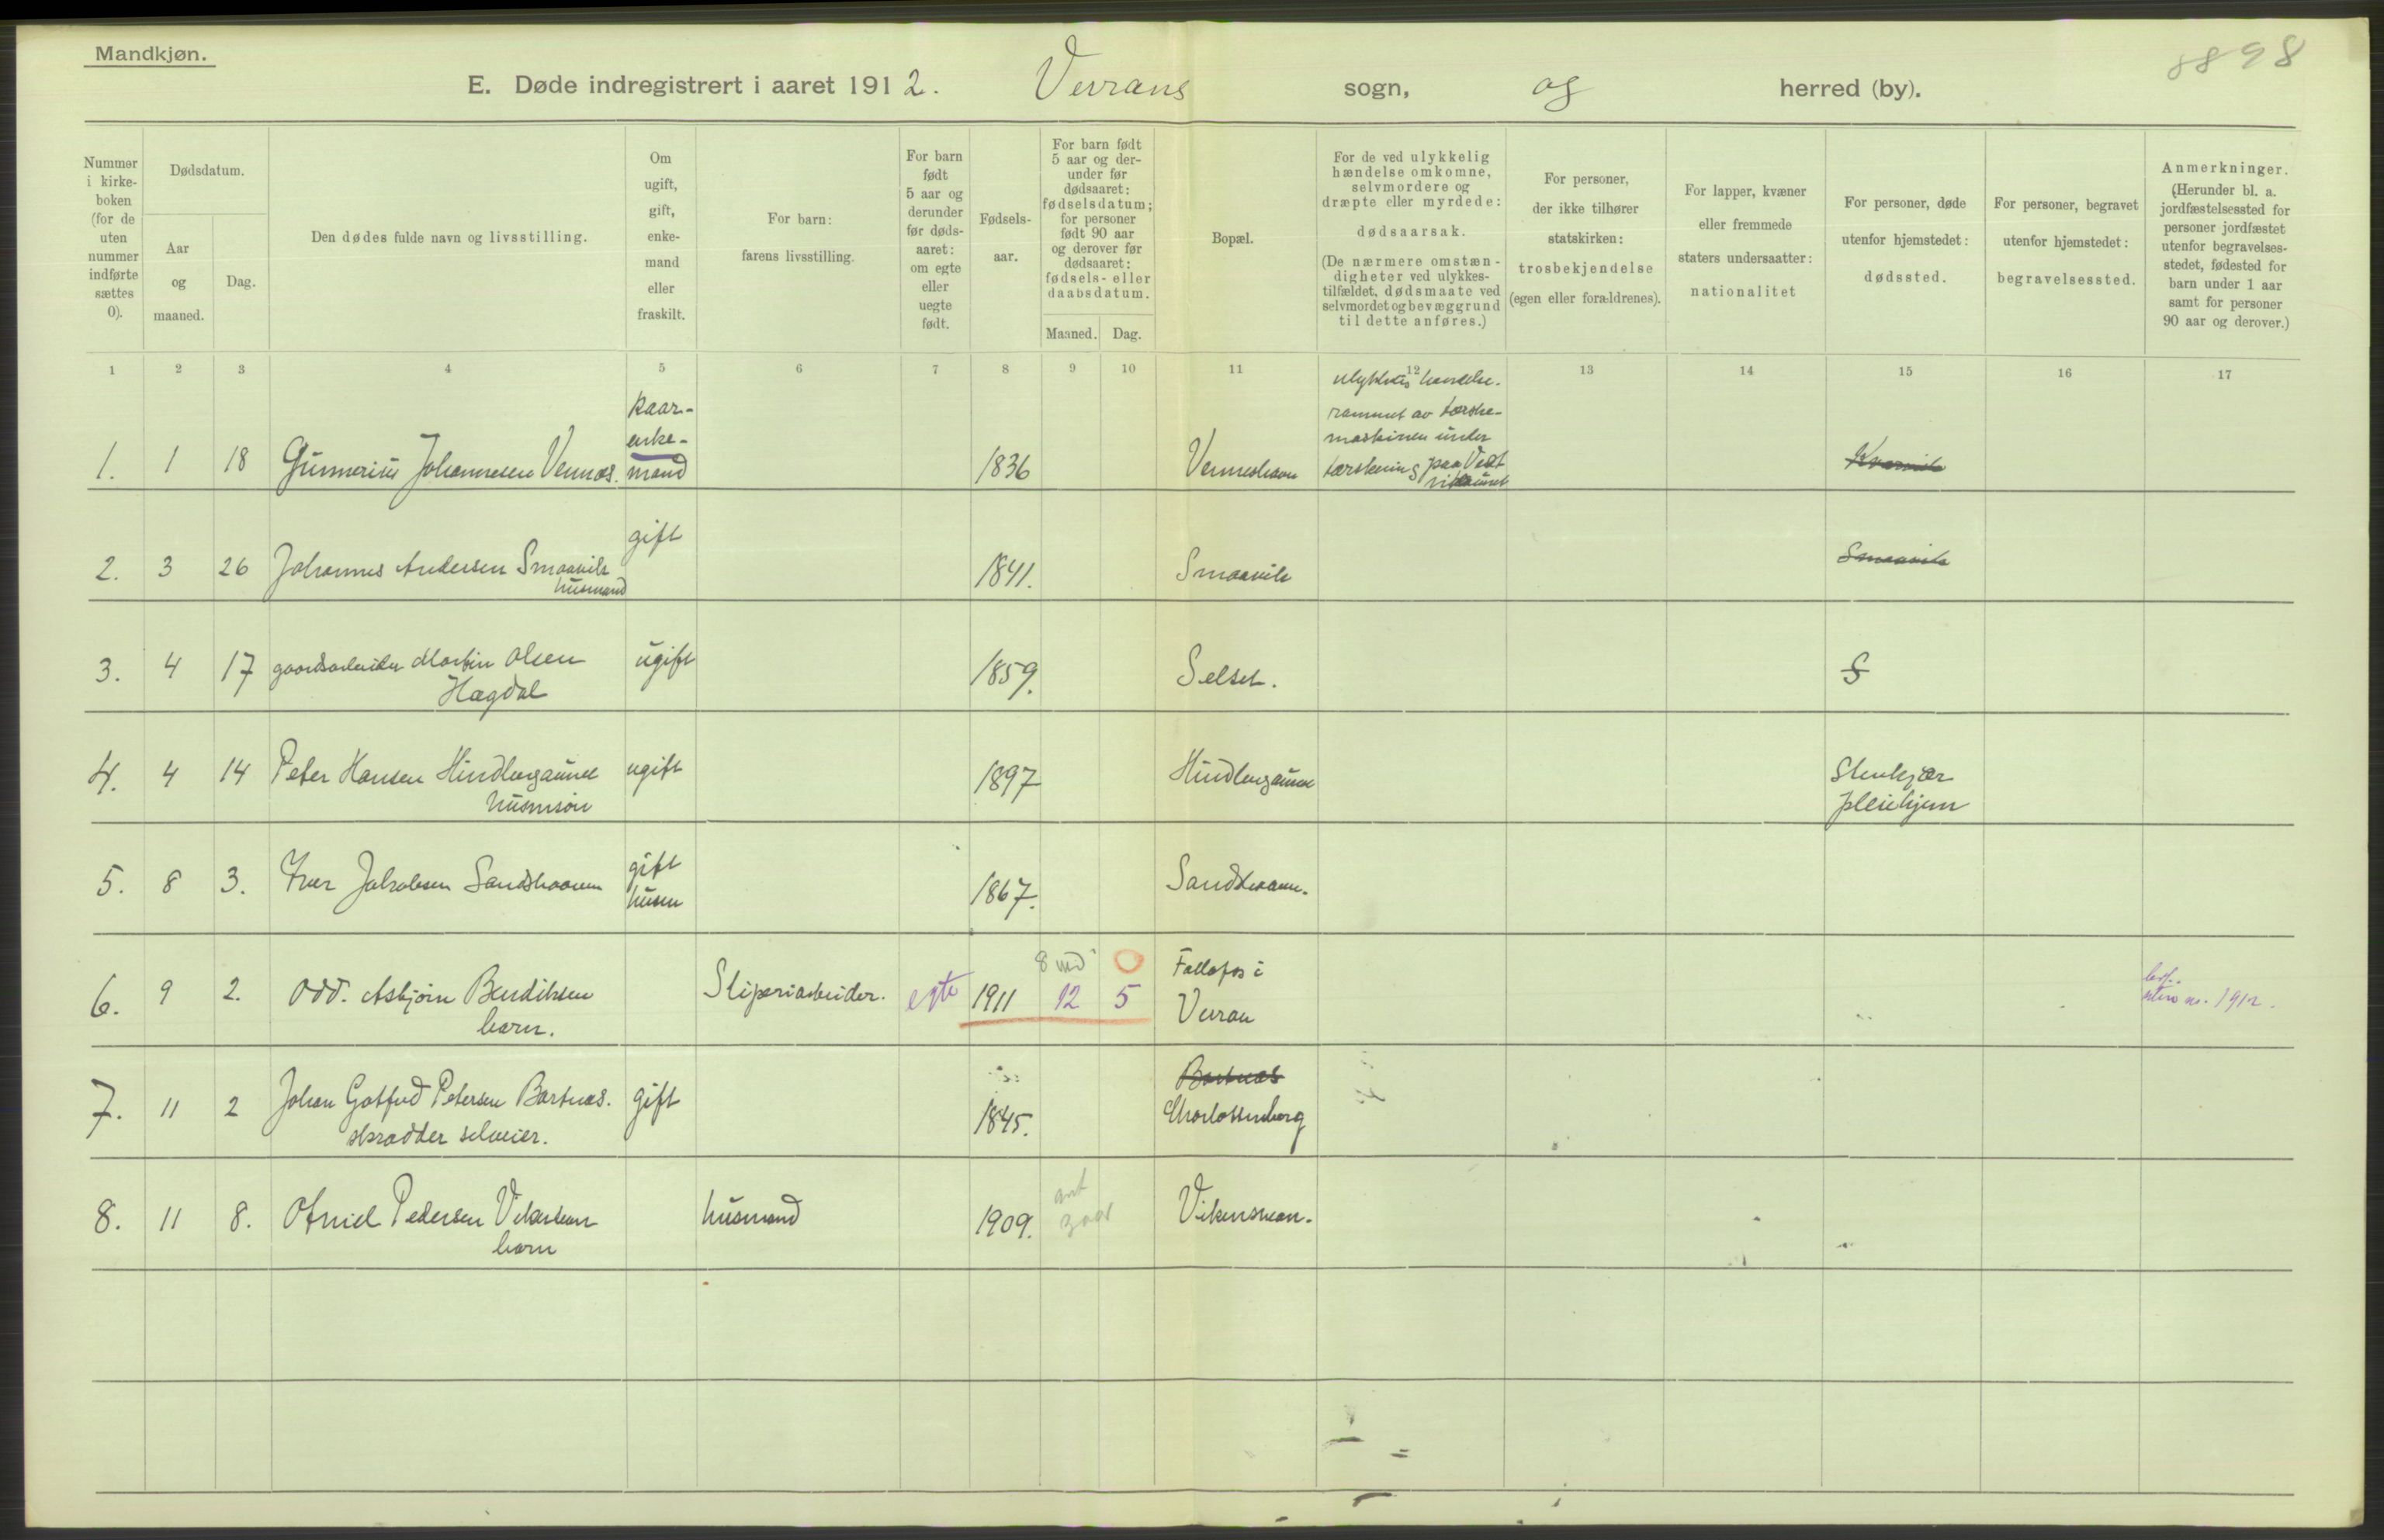 Mandkjøn.
8898
E. Døde indregistrert i aaret 1912. Verrans sogn, og herred (by).
Nummer i kirkeboken (for de uten nummer indførte sættes 0).
Dødsdatum.
Aar og maaned.
Dag.
Den dødes fulde navn og livsstilling.
Om ugift, gift, enkemand eller fraskilt.
For barn: farens livsstilling.
For barn født 5 aar og derunder før dødsaaret: om egte eller uegte født.
Fødselsaar.
For barn født 5 aar og derunder før dødsaaret: fødselsdatum; for personer født 90 aar og derover før dødsaaret: fødsels- eller daabsdatum.
Maaned. Dag.
Bopæl.
For de ved ulykkelig hændelse omkomne, selvmordere og dræpte eller myrdede: dødsaarsak.
(De nærmere omstændigheter ved ulykkestilfældet, dødsmaate ved selvmordet og bevæggrund til dette anføres.)
For personer, der ikke tilhører statskirken: trosbekjendelse (egen eller forældrenes).
For lapper, kvæner eller fremmede staters undersaatter: nationalitet
For personer, døde utenfor hjemstedet: dødssted.
For personer, begravet utenfor hjemstedet: begravelsessted.
Anmerkninger.
(Herunder bl. a. jordfæstelsessted for personer jordfæstet utenfor begravelsesstedet, fødested for barn under 1 aar samt for personer 90 aar og derover.)
1 2 3 4 5 6 7 8 9 10 11 12 13 14 15 16 17
1. 1 18 Gunnerius Johannesen Vennæs. kaarenkemand 1836 Venneshavn
ulykkes hændelse.
rammet av tærskemaskinen under
tærskning paa
2. 3 26 Johannes Andersen Smaavik gift 1841. Smaavik Smaavik
husmand
3. 4 17 gaardsarbeider Martin Olsen ugift 1859. Selset. S
Hagdal
4. 4 14 Peter Hansen Hindbergaunet ugift 1897 Hindbergaunet Stenkjær
husmsøn pleiehjem
5. 8 3. Iver Jakobsen gift 1867.
husm
6. 9 2. Odd. Asbjørn Bendiksen Sliperiarbeider. egte 1911 12 5 Follafos i
barn. 8 md 0 Verran
1912.
7. 11 2 Johan Gotfred Petersen Bartnæs. gift 1845. Bartnæs
skrædder selveier. Charlottenberg
8. 11 8. Otniel Pedersen husmand 1909. ant 3 aar
barn